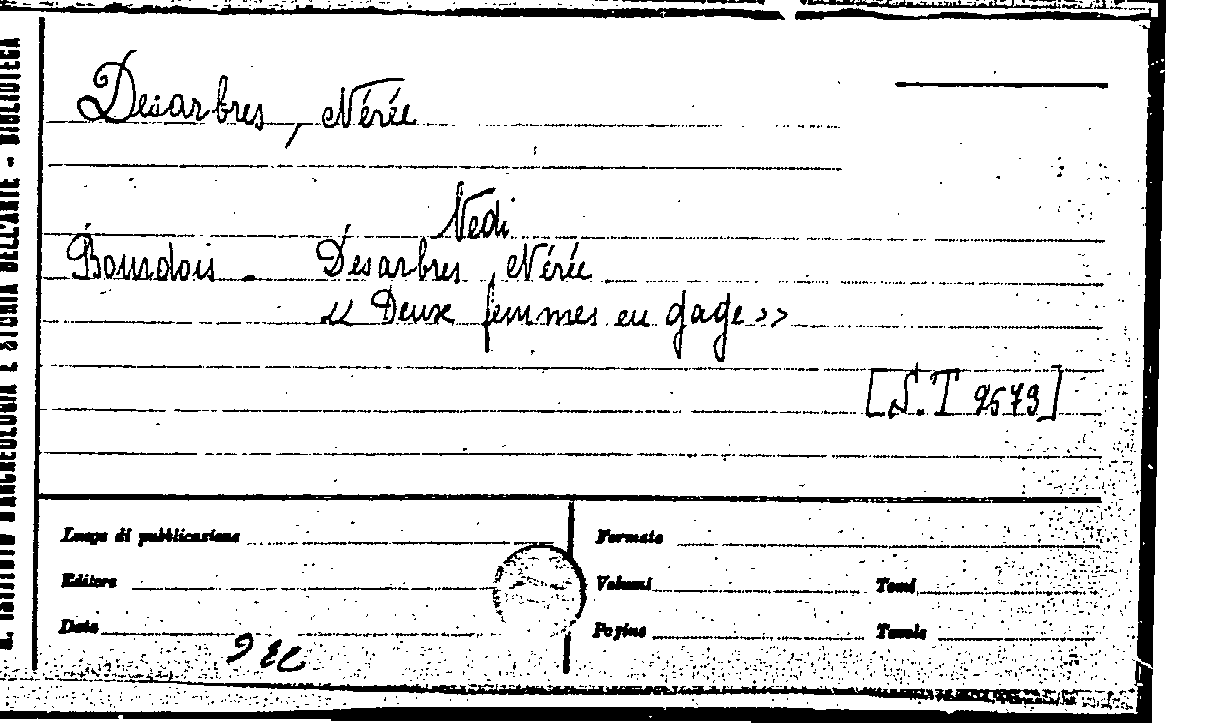 Desarbres, Nérée
Vedi
Bourdois - Desarbres, Nérée
« Deux femmes en gage »
[S.T 9573]
Luogo di pubblicazione
Formato
Editore
Volumi
Tomi
Data
Pagine
Tavole
R. ISTITUTO D'ARCHEOLOGIA E STORIA DELL'ARTE - BIBLIOTECA